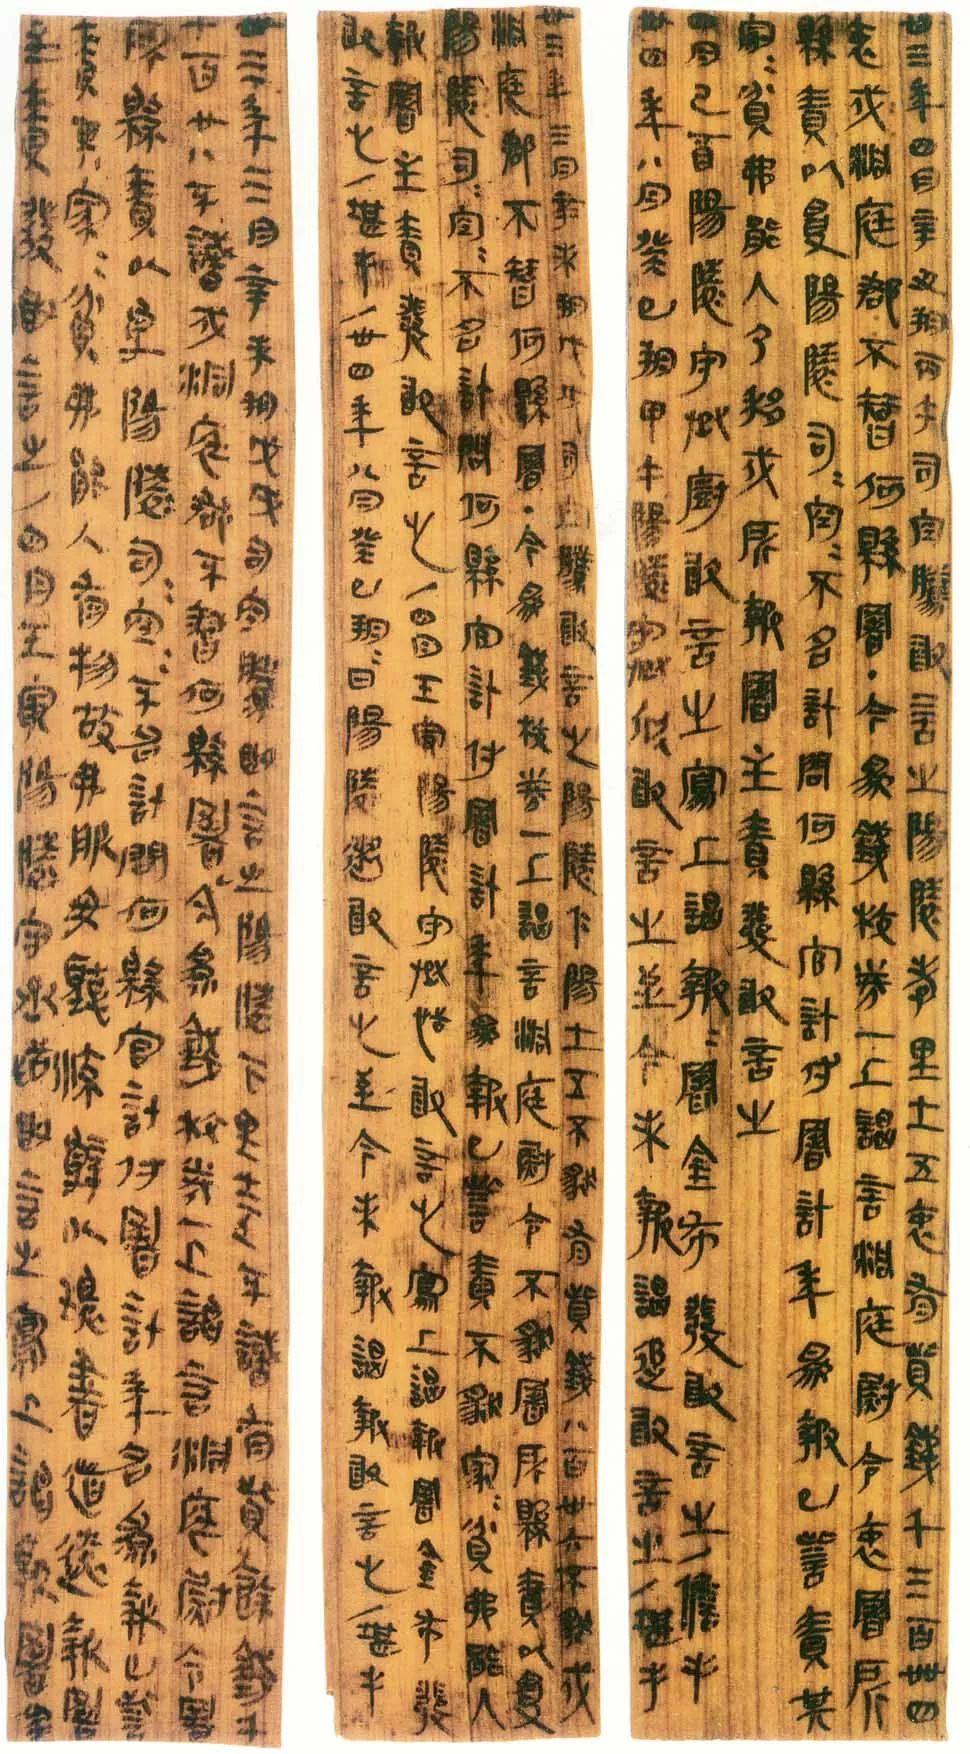 卅三年四月辛丑朔丙午司空騰敢言之陽陵孝里士五衷有貲錢千三百卌四
衷戍洞庭郡不智何縣署·今為錢校券一上謁言洞庭尉令衷署所
縣責以受陽陵司=空=不名計問何縣官計付署計年為報已訾責其
家=貧弗能入乃移戍所報署主責發敢言之
四月己酉陽陵守丞廚敢言之寫上謁報=署金布發敢言之/儋手
卅四年八月癸巳朔甲午陽陵守丞欣敢言之至今未報謁追敢言之/堪手
卅三年三月辛未朔戊戌司空騰敢言之陽陵仁陽士五不豖有貲錢八百卅六不豖戍
洞庭郡不智何縣署·今為錢校券一上謁言洞庭尉令不豖署所縣責以受
陽陵司=空=不名計問何縣官計付署計年為報已訾責不豖家=貧弗能入
報署主責發敢言之/四月壬寅陽陵守丞恬敢言之寫上謁報署金布發
敢言之/堪手/卅四年八月癸巳朔=日陽陵遬敢言之至今未報謁報敢言之/堪手
卅三年三月辛未朔戊戌司空騰敢言之陽陵下里士五不識有貲餘錢千
七百廿八不識戍洞庭郡不智何縣署今為錢校券一上謁言洞庭尉令署
所縣責以受陽陵司=空=不名計問何縣官計付署計年名為報已訾
責其家=貧弗能入有物故弗服毋聽流辭以環書道遠報署
主責發敢言之/四月壬寅陽陵守丞恬敢言之寫上謁報署金